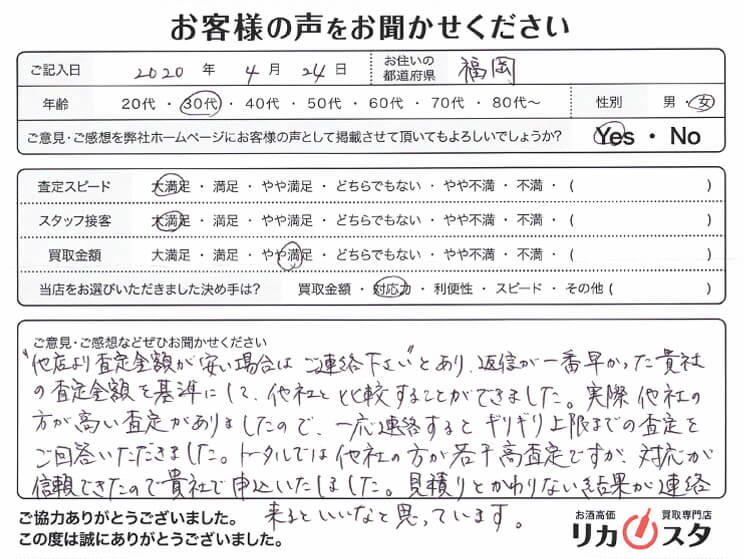 お客様の声をお聞かせください
ご記入日 2020 年 4 月 24 日 お住いの都道府県 福岡
年齢 20代 ・ 30代 ・ 40代 ・ 50代 ・ 60代 ・ 70代 ・ 80代〜 性別 男 ・ 女
ご意見・ご感想を弊社ホームページにお客様の声として掲載させて頂いてもよろしいでしょうか? Yes ・ No
査定スピード 大満足 ・ 満足 ・ やや満足 ・ どちらでもない ・ やや不満 ・ 不満 ・ ( )
スタッフ接客 大満足 ・ 満足 ・ やや満足 ・ どちらでもない ・ やや不満 ・ 不満 ・ ( )
買取金額 大満足 ・ 満足 ・ やや満足 ・ どちらでもない ・ やや不満 ・ 不満 ・ ( )
当店をお選びいただきました決め手は? 買取金額 ・ 対応力 ・ 利便性 ・ スピード ・ その他 ( )
ご意見・ご感想などぜひお聞かせください
"他店より査定金額が安い場合は ご連絡下さい"とあり、返信が一番早かった貴社
の査定金額を基準にして、他社と比較することができました。実際他社の
方が高い査定がありましたので、一応連絡するとギリギリ上限までの査定を
ご回答いただきました。トータルでは他社の方が若干高査定ですが、対応が
信頼できたので貴社で申込いたしました。見積りとかわりない結果が連絡
来るといいなと思っています。
ご協力ありがとうございました。
この度は誠にありがとうございました。
お酒高価 買取専門店
リカスタ